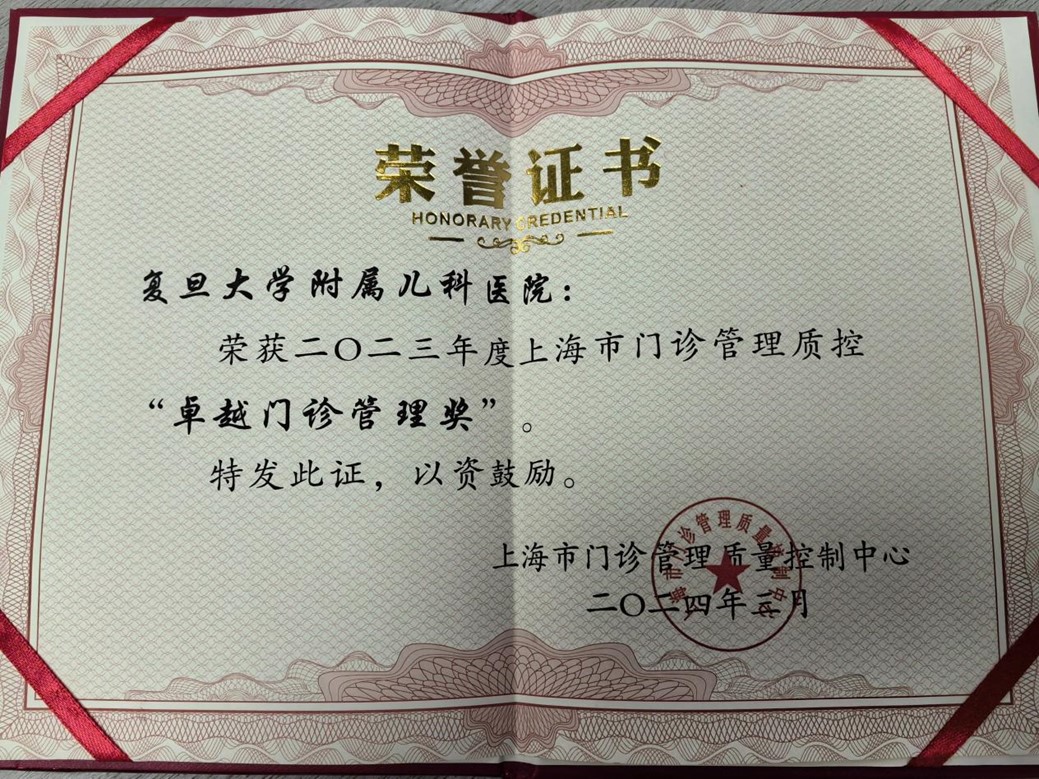 荣誉证书
HONORARY CREDENTIAL
复旦大学附属儿科医院：
荣获二〇二三年度上海市门诊管理质控
“卓越门诊管理奖”。
特发此证，以资鼓励。
上海市门诊管理质量控制中心
二〇二四年三月
上海市门诊管理质量控制中心